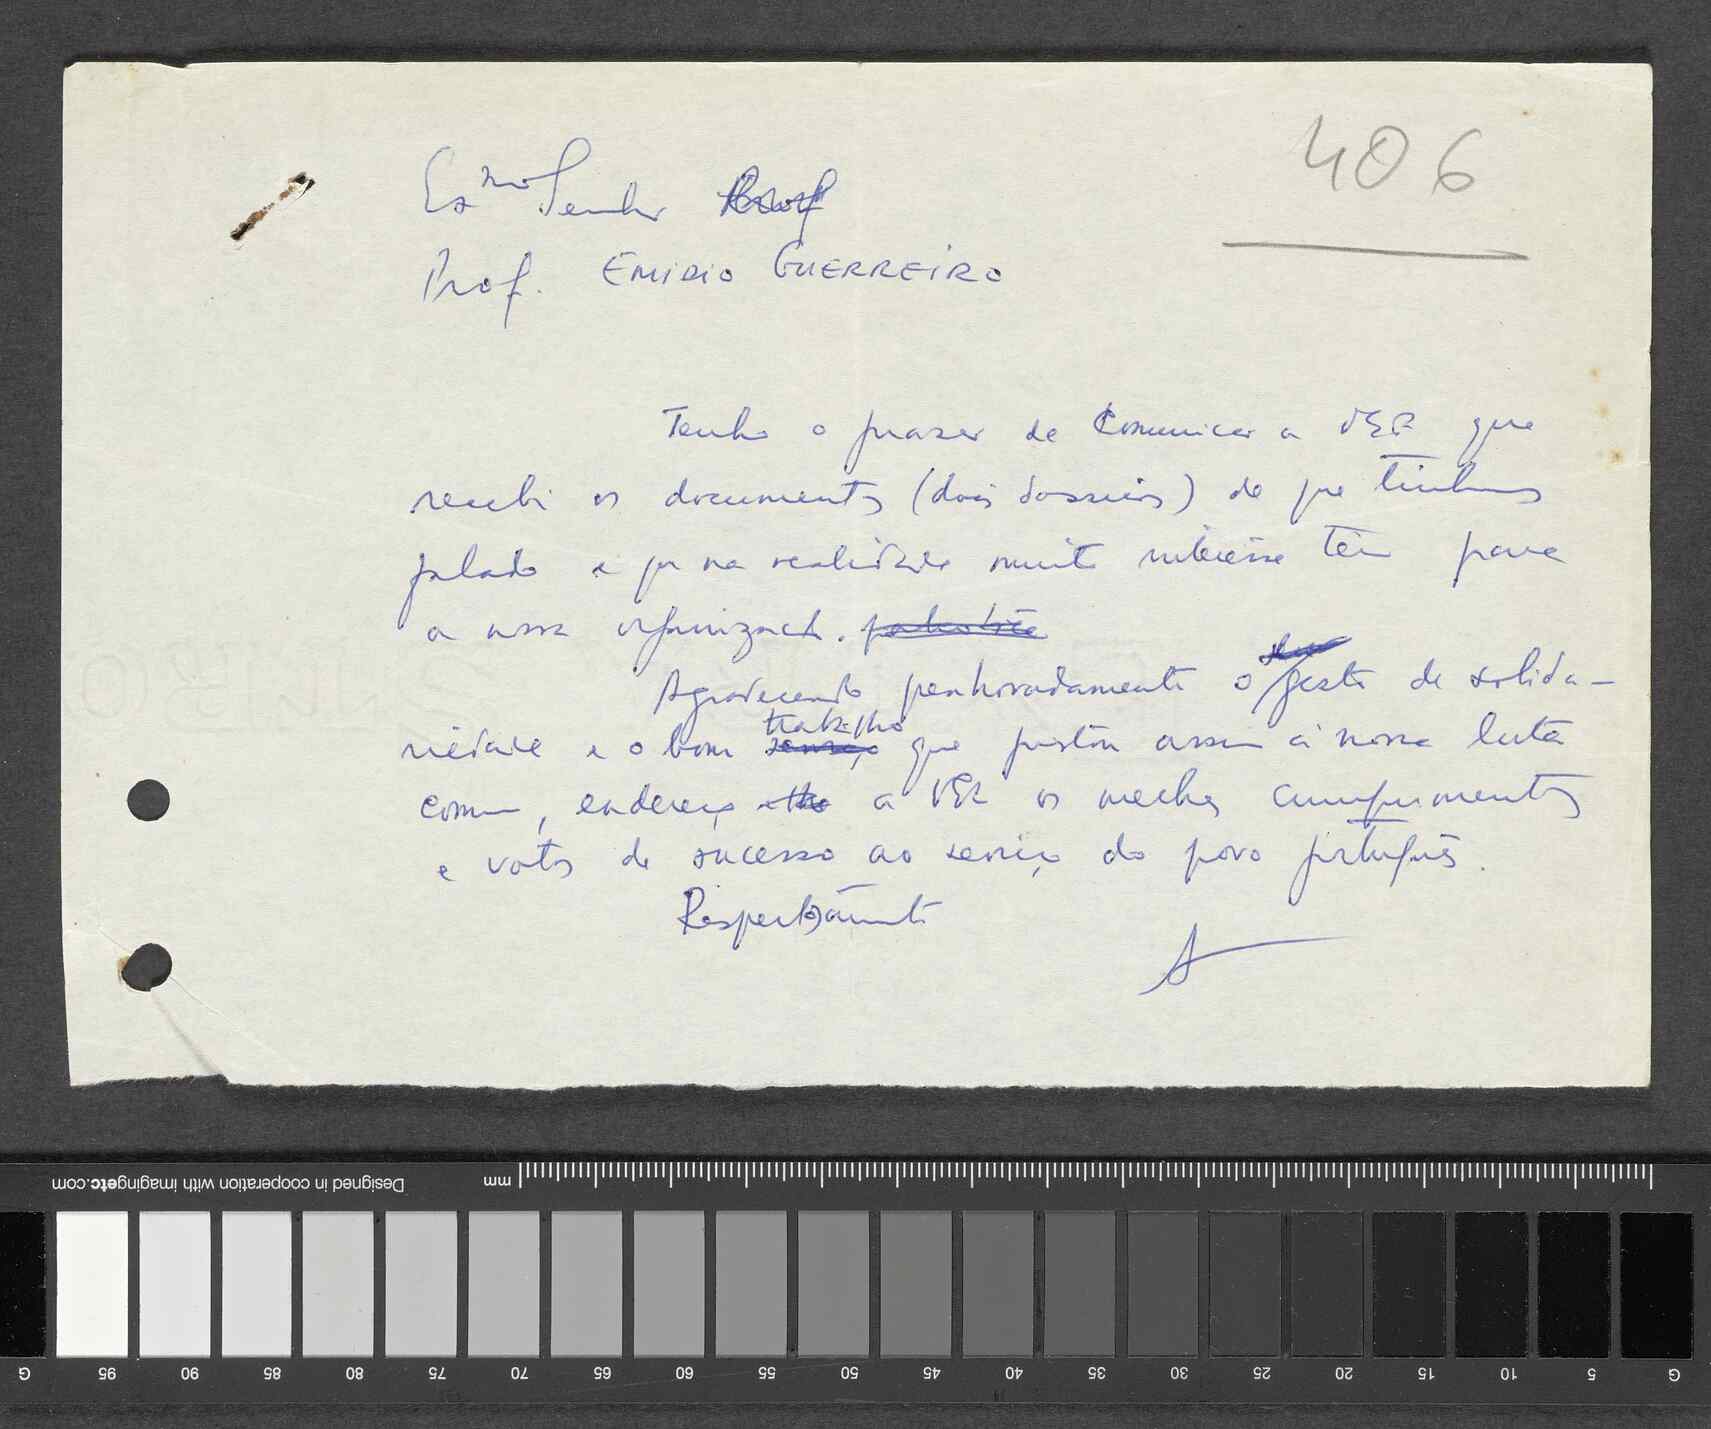 406
Exmo Senhor Prof
Prof. EMIDIO GUERREIRO
Tenho o prazer de Comunicar a VExa que
recebi os documentos (dois dossiers) de que tinhamos
falado e que na realidade muito interesse têm para
a nossa organização.
Agradecendo penhoradamente o gesto de solida-
riedade e o bom trabalho que prestou assim à nossa luta
comum, endereço a VExa os melhores cumprimentos
e votos de sucesso ao serviço do povo português.
Respeitosamente
Designed in cooperation with imagingetc.com
mm
G 95 90 85 80 75 70 65 60 55 50 45 40 35 30 25 20 15 10 5 G